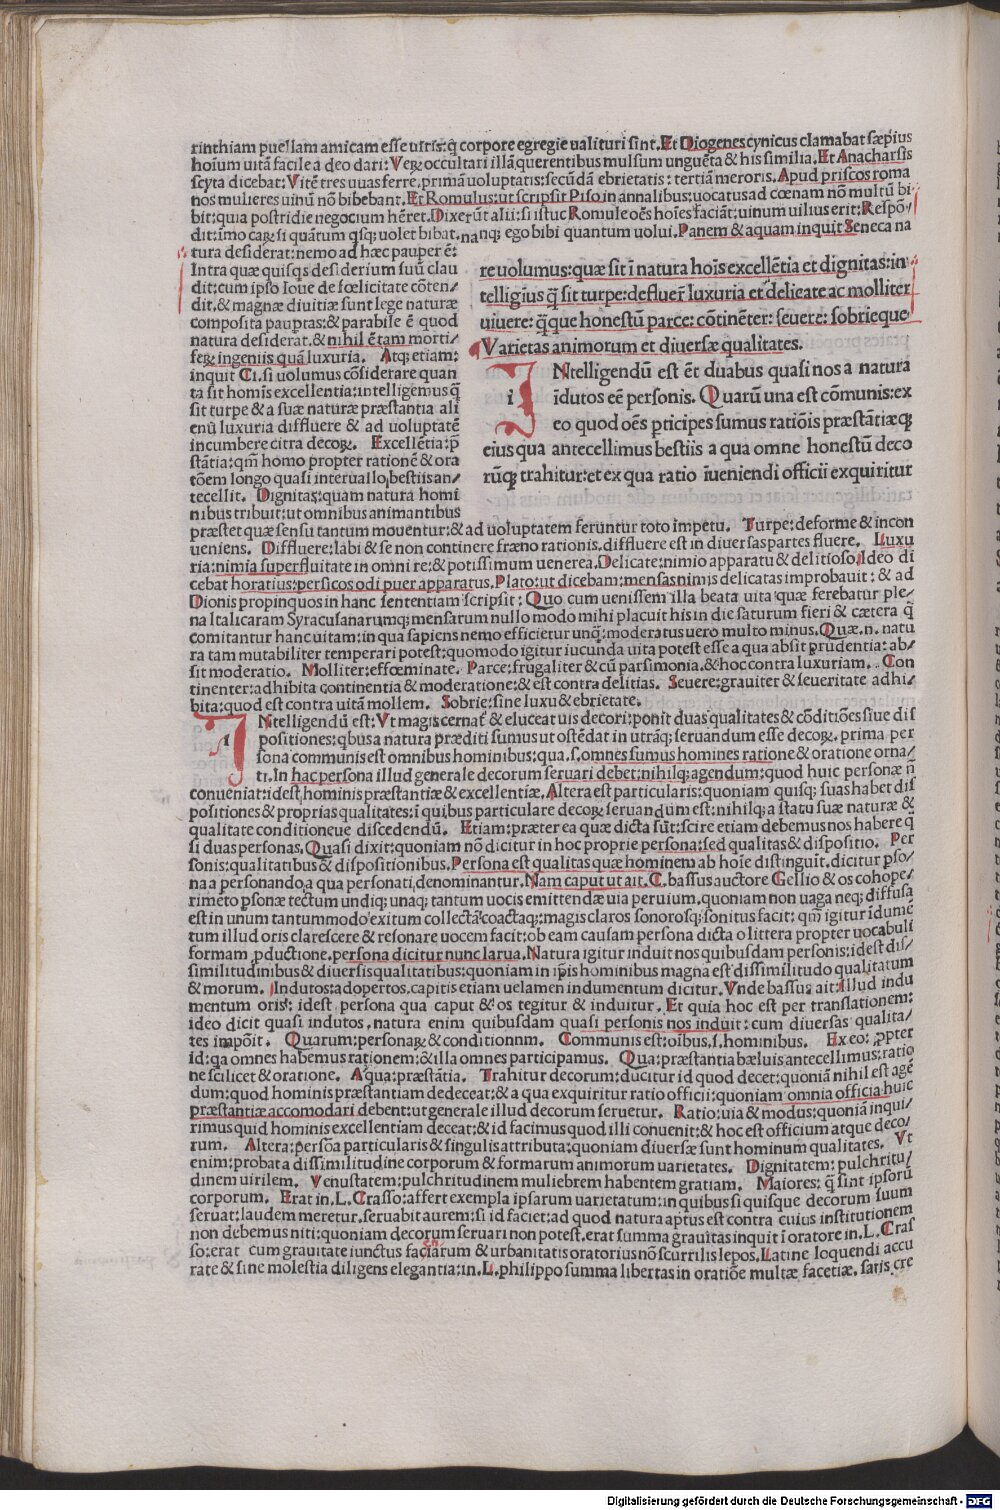 rinthiam puellam amicam esse uestris: q̃ corpore egregie ualituri sint. Et Diogenes cynicus clamabat sæpius
hoīum uitā facile a deo dari: Veꝝ occultari illā querentibus mulsum unguēta & his similia. Et Anacharsis
scyta dicebat: Vitē tres uuas ferre, primā uoluptatis: secūdā ebrietatis: tertiā meroris. Apud priscos roma
nos mulieres uinū nō bibebant. Et Romulus: ut scripsit Piso in annalibus: uocatus ad cœnam nō multū bi⸗
bit: quia postridie negocium hēret. Dixerūt alii: si istuc Romule oēs hoīes faciāt: uinum uilius erit: Respō⸗
dit: īmo caꝝ si quātum qsq; uolet bibat. nanq; ego bibi quantum uolui. Panem & aquam inquit Seneca na
tura desiderat: nemo ad hæc pauper ē:
Intra quæ quisqs desiderium suū clau
dit: cum ipso Ioue de fœlicitate cōten⸗
dit. & magnæ diuitiæ sunt lege naturæ
composita paupras: & parabile ē quod
natura desiderat. & nihil ē tam morti⸗
feꝝ ingeniis quā luxuria. Atq; etiam:
inquit Ci. si uolumus cōsiderare quan
ta sit homīs excellentia: intelligemus q̃
sit turpe & a suæ naturæ præstantia ali
enū luxuria diffluere & ad uoluptatē
incumbere citra decoꝝ. Excellētia: p̄
stātia: qm̄ homo propter rationē & ora
tōem longo quasi interuallo bestiis an⸗
tecellit. Dignitas: quam natura homi
nibus tribuit: ut omnibus animantibus
re uolumus: quæ sit ī natura hoīs excellētia et dignitas: in
telligius q̃ sit turpe: defluer̄ luxuria et delicate ac molliter
uiuere: q̃que honestū parce: cōtinēter: seuere: sobrieque
Varietas animorum et diuersæ qualitates.
i INtelligendū est ēt duabus quasi nos a natura
idutos eē personis. Quarū una est cōmunis: ex
eo quod oēs pticipes sumus ratiōis præstātiæq;
eius qua antecellimus bestiis a qua omne honestū deco
rūq; trahitur: et ex qua ratio īueniendi officii exquiritur
præstet quæ sensu tantum mouentur: & ad uoluptatem feruntur toto īmpetu. Turpe: deforme & incon
ueniens. Diffluere: labi & se non continere fræno rationis. diffluere est in diuersas partes fluere. Luxu
ria: nimia superfluitate in omni re: & potissimum uenerea. Delicate: nimio apparatu & delitioso. Ideo di
cebat horatius: persicos odi puer apparatus. Plato: ut dicebam: mensas nimis delicatas improbauit: & ad
Dionis propinquos in hanc sententiam scripsit: Quo cum uenissem illa beata uita quæ ferebatur ple⸗
na Italicaram Syracusanarumq; mensarum nullo modo mihi placuit his in die saturum fieri & cætera q̃
comitantur hanc uitam: in qua sapiens nemo efficietur unq̄: moderatus uero multo minus. Quæ. n. natu
ra tam mutabiliter temperari potest: quomodo igitur iucunda uita potest esse a qua absit prudentia: ab⸗
sit moderatio. Molliter: effœminate. Parce: frugaliter & cū parsimonia. & hoc contra luxuriam. Con
tinenter: adhibita continentia & moderatione: & est contra delitias. Seuere: grauiter & seueritate adhi⸗
bita: quod est contra uitā mollem. Sobrie: sine luxu & ebrietate.
i INtelligendū est: Vt magis cernat̄ & eluceat uis decori: ponit duas qualitates & cōditiōes siue dis
positiones: qbus a natura præditi sumus ut ostēdat in utráq; seruandum esse decoꝝ. prima per
sona communis est omnibus hominibus: qua. s. omnes sumus homines ratione & oratione orna⸗
ti. In hac persona illud generale decorum seruari debet: nihilq; agendum: quod huic personæ n̄
conueniat: idest hominis præstantiæ & excellentiæ. Altera est particularis: quoniam quisq; suas habet dis
positiones & proprias qualitates: ī quibus particulare decoꝝ seruandum est: nihilq; a statu suæ naturæ &
qualitate conditioneue discedendū. Etiam: præter ea quæ dicta sūt: scire etiam debemus nos habere q̄
si duas personas. Quasi dixit: quoniam nō dicitur in hoc proprie persona: sed qualitas & dispositio. Per
sonis: qualitatibus & dispositionibus. Persona est qualitas quæ hominem ab hoīe distinguit. dicitur pso⸗
na a personando, a qua personati, denominantur. Nam caput ut ait. C. bassus auctore Gellio & os cohope⸗
rimēto psonæ tectum undiq; unaq; tantum uocis emittendæ uia peruium. quoniam non uaga neq; diffusa
est in unum tantummodo exitum collectā coactaq; magis claros sonorosq; sonitus facit: qm̄ igitur īdumē
tum illud oris clarescere & resonare uocem facit: ob eam causam persona dicta o littera propter uocabuli
formam ꝓductione. persona dicitur nunc larua. Natura igitur induit nos quibusdam personis: idest dis⸗
similitudinibus & diuersis qualitatibus: quoniam in ip̄is hominibus magna est dissimilitudo qualitatum
& morum. Indutos: adopertos. capitis etiam uelamen indumentum dicitur. Vnde bassus ait: Illud indu
mentum oris: idest persona qua caput & os tegitur & induitur. Et quia hoc est per translationem:
ideo dicit quasi indutos. natura enim quibusdam quasi personis nos induit: cum diuersas qualita⸗
tes impōit. Quarum: personaꝝ & conditionnm. Communis est: oībus. s. hominibus. Ex eo: ꝓpter
id: qa omnes habemus rationem: & illa omnes participamus. Qua: præstantia bæluis antecellimus: ratio
ne scilicet & oratione. A qua: præstātia. Trahitur decorum: ducitur id quod decet: quoniā nihil est agē
dum: quod hominis præstantiam dedeceat: & a qua exquiritur ratio officii: quoniam omnia officia huic
præstantiæ accomodari debent: ut generale illud decorum seruetur. Ratio: uia & modus: quoniā inqui⸗
rimus quid hominis excellentiam deceat: & id facimus quod illi conuenit: & hoc est officium atque deco⸗
rum. Altera: persōa particularis & singulis attributa: quoniam diuersæ sunt hominum qualitates. Vt
enim: probat a dissimilitudine corporum & formarum animorum uarietates. Dignitatem: pulchritu⸗
dinem uirilem. Venustatem: pulchritudinem muliebrem habentem gratiam. Maiores: q̃ sint ipsorū
corporum. Erat in. L. Crasso: affert exempla ipsarum uarietatum: in quibus si quisque decorum suum
seruat: laudem meretur. seruabit aurem: si id faciet: ad quod natura aptus est contra cuius institutionem
non debemus niti: quoniam decorum seruari non potest. erat summa grauitas inquit ī oratore in. L. Cras
so: erat cum grauitate iunctus faciarum & urbanitatis oratorius nō scurrilis lepos. Latine loquendi accu
rate & sine molestia diligens elegantia: in. L. philippo summa libertas in oratiōe multæ facetiæ. satis cre
Digitalisierung gefördert durch die Deutsche Forschungsgemeinschaft - DFG